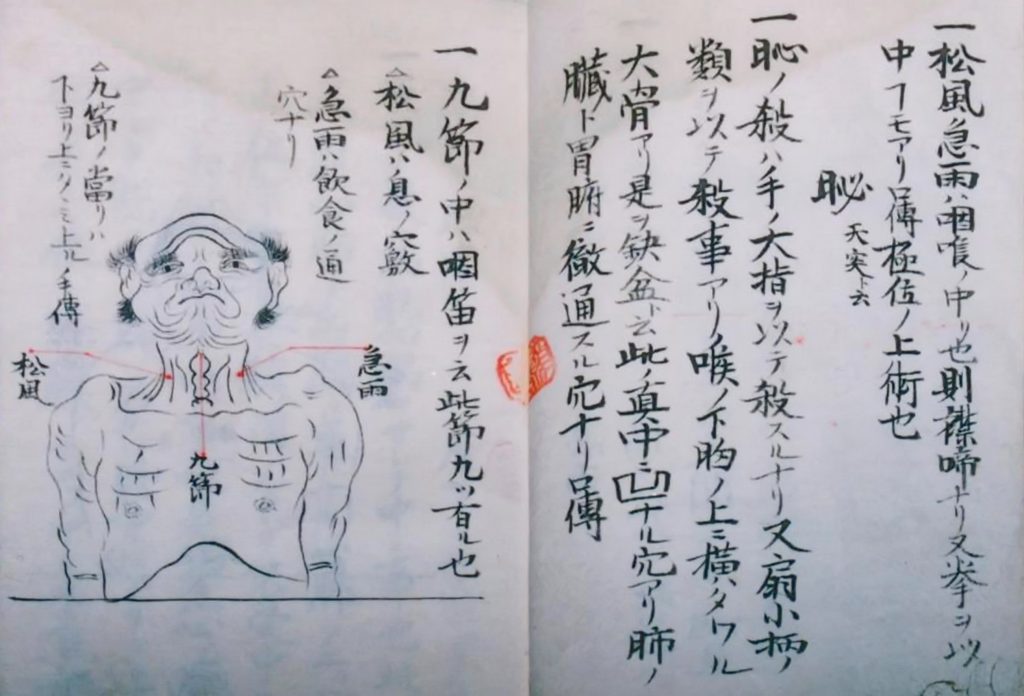 一松風急雨ハ咽喉ノ中リ也則襟啼ナリ又拳ヲ以
中フモアリ口傳極位ノ上術也
天突ト云
ノ殺ハ手ノ大指ヲ以テ殺スルナリ又扇小柄ノ
類ヲ以テ殺事アリノ喉ノ下胸ノ上ニ横ハタワル
大骨アリ是ヲ缺盆ト云此ノ真中ニ凹ナル穴アリ肺ノ
臓ト胃腑ニ徹通スル穴ナリ口傳
一九節ノ中ハ咽笛ヲ云此節九ツ有ル也
△松風ハ息ノ竅
△急雨ハ飲食ノ通
穴ナリ
△九節ノ當リハ
下ヨリ上ニ上ル手傳
急雨
九節
松風